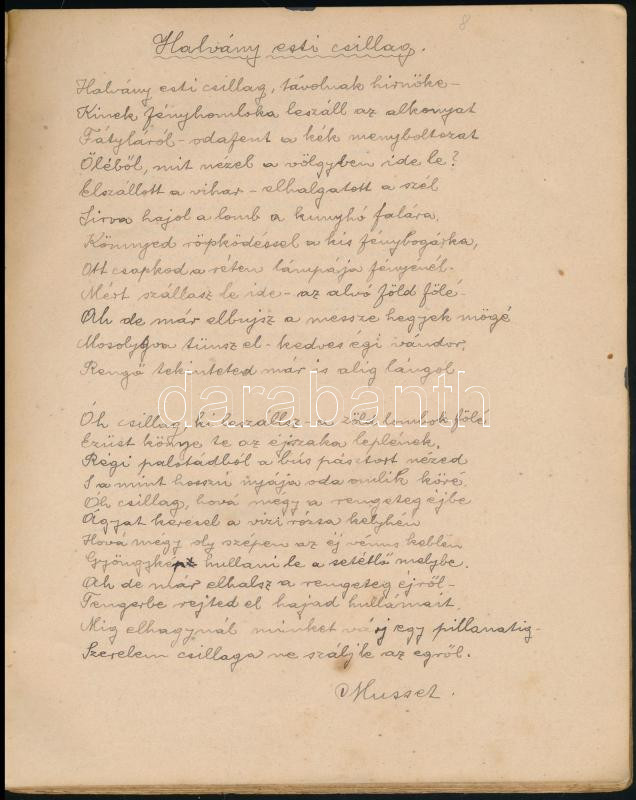 8
Halvány esti csillag.
Halvány esti csillag, távolnak hirnöke -
Kinek fényhomloka leszáll az alkonyat
Fátyláról - odafent a kék menyboltozat
Öléből, mit nézel a völgyben ide le?
Elszállott a vihar - elhalgatott a szél
Sirva hajol a lomb a kunyhó falára,
Könnyed röpködéssel a kis fénybogárka,
Ott csapkod a réten lámpája fényénél.
Mért szállasz le ide - az alvó föld fölé -
Ah de már elbujsz a messze hegyek mögé
Mosolyogva tünsz el - kedves égi vándor,
Rengő tekinteted már is alig lángol
darabanth
Óh csillag, ki leszállsz - a zöld lombok fölé
Ezüst könnye te az éjszaka leplének,
Régi palotádból a bús pásztort nézed
S a mint hosszú nyája oda omlik köré.
Óh csillag, hová mégy a rengeteg éjbe
Ágyat keresel a vizi rózsa kelyhén
Hová mégy oly szépen az éj vénus keblén
Gyöngykép hullani le a setétlő mélybe.
Ah de már elhalsz a rengeteg éjről -
Tengerbe rejted el hajad hullámait,
Mig elhagynál minket várj egy pillanatig -
Szerelem csillaga ne szálj le az égről.
Musset.